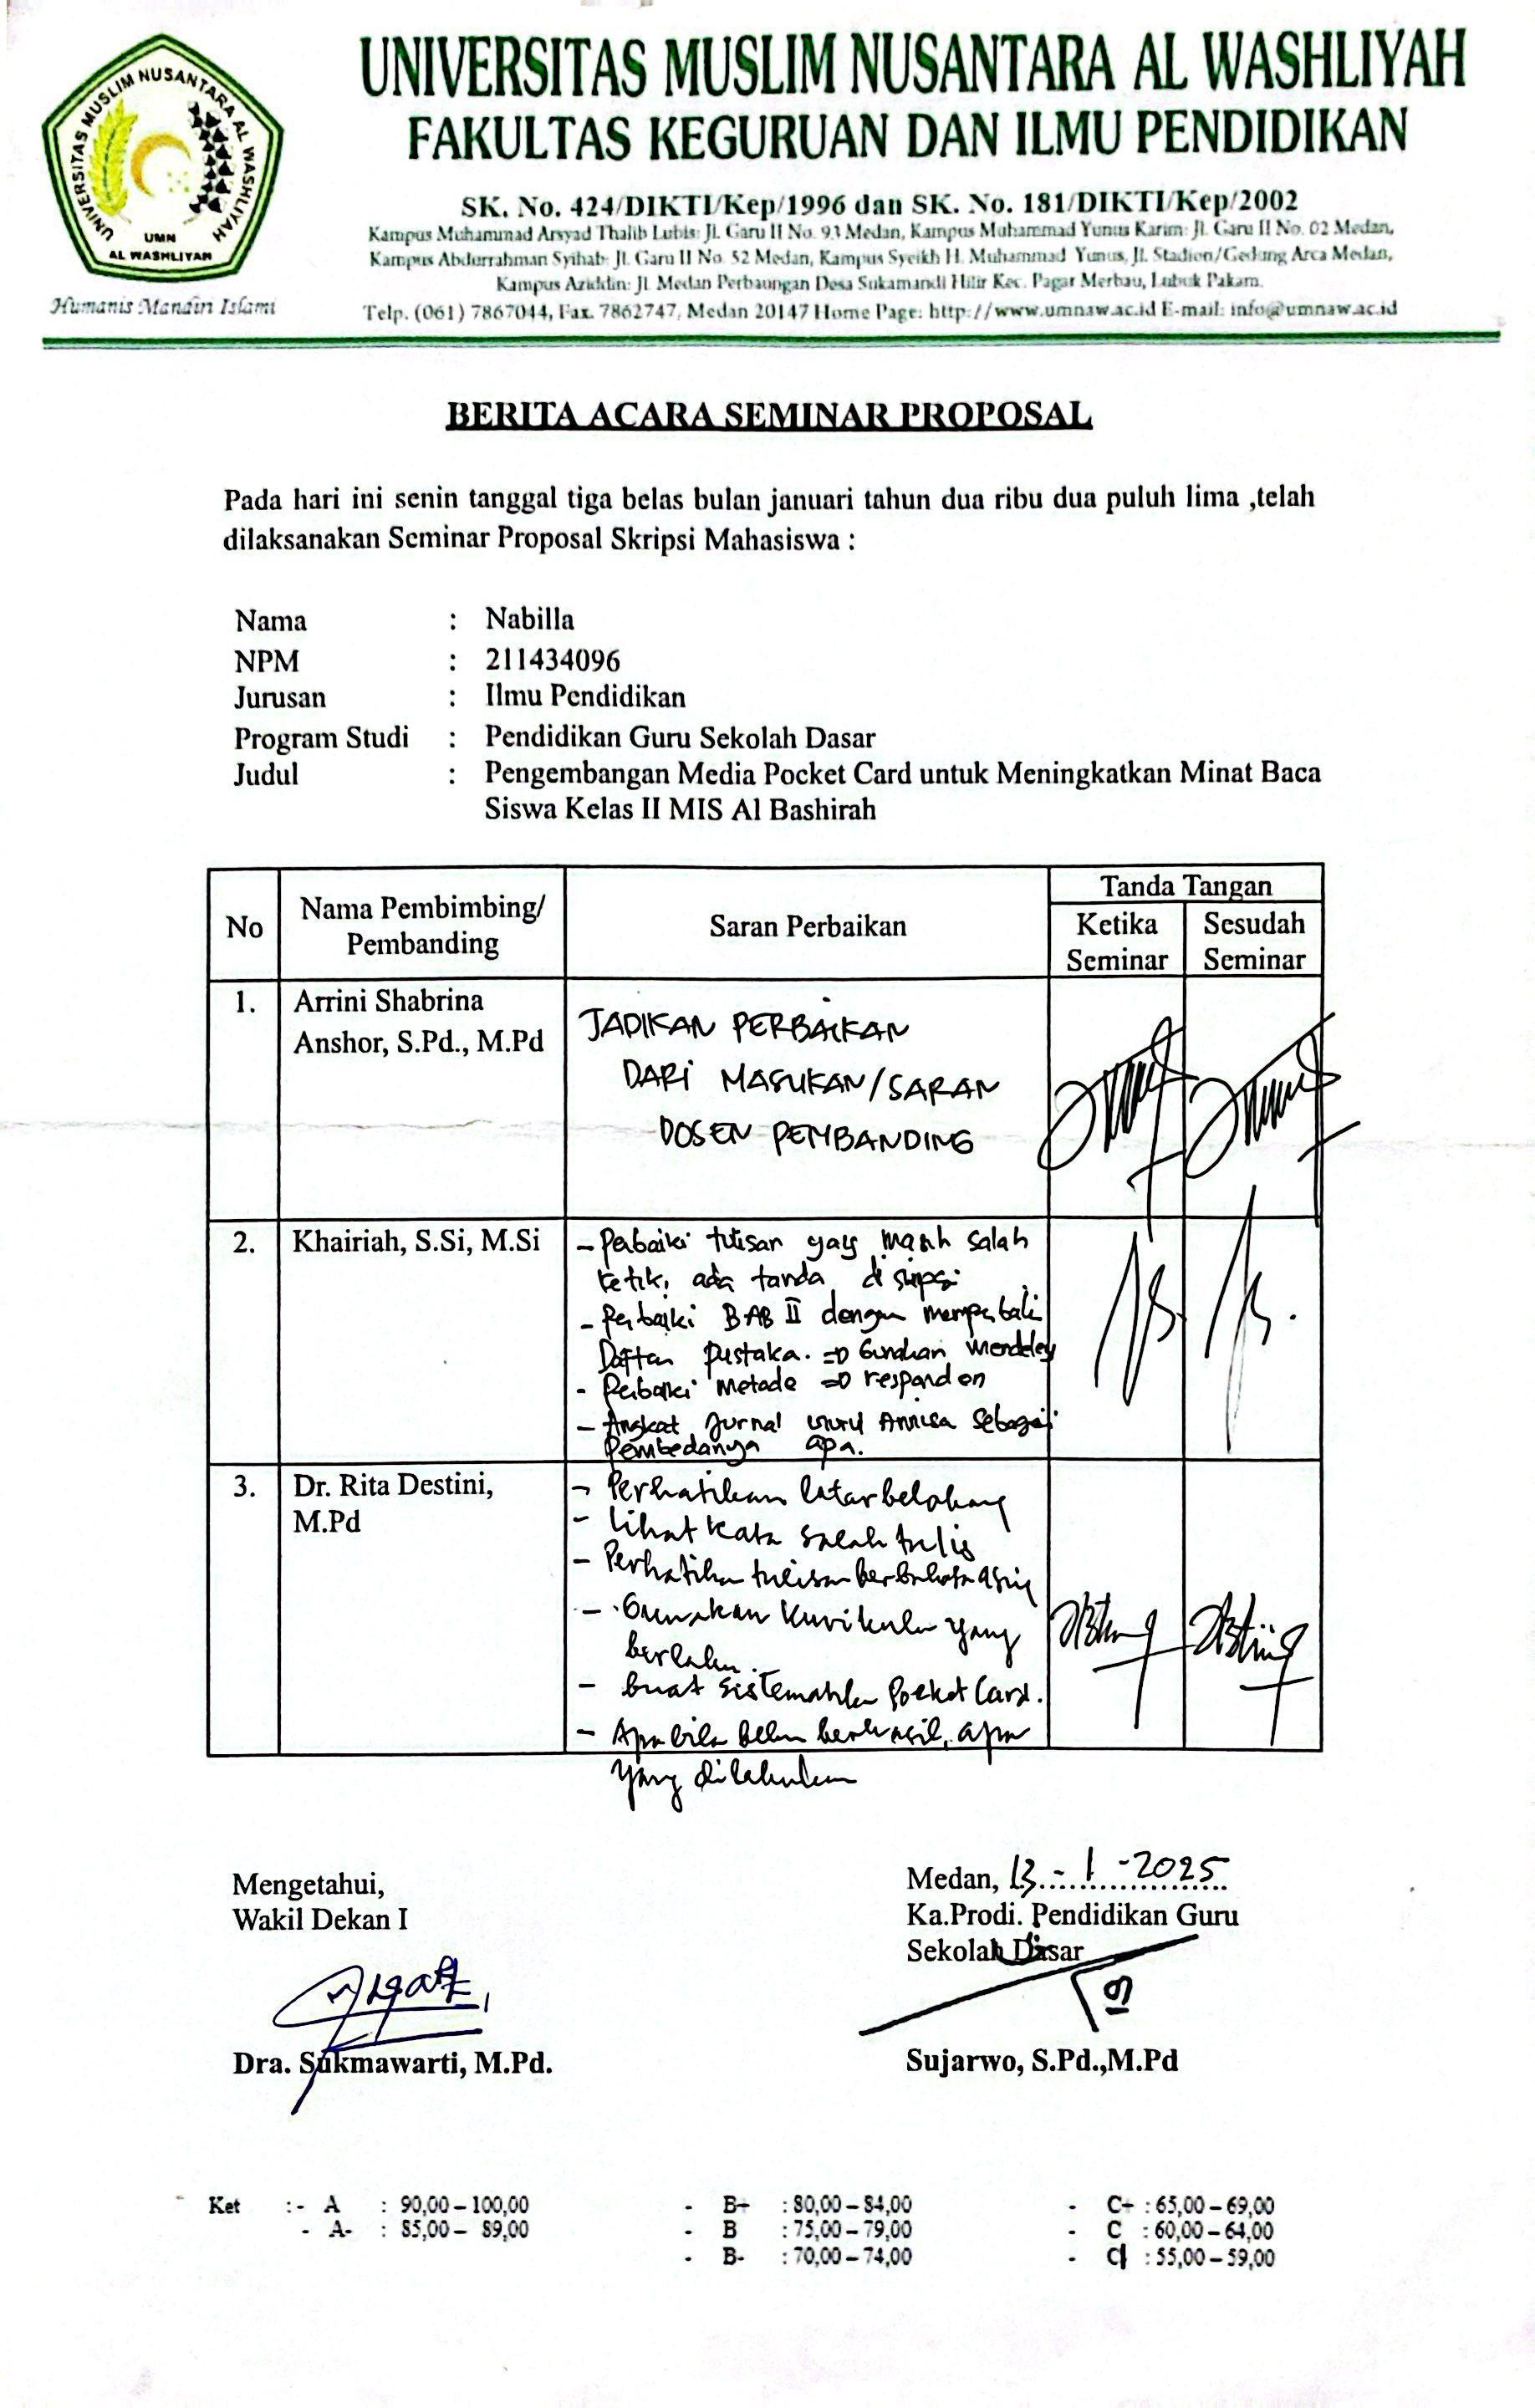 UNIVERSITAS MUSLIM NUSANTARA AL WASHLIYAH
FAKULTAS KEGURUAN DAN ILMU PENDIDIKAN
SK. No. 424/DIKTI/Kep/1996 dan SK. No. 181/DIKTI/Kep/2002
Kampus Muhammad Arsyad Thalib Lubis: Jl. Garu II No. 93 Medan, Kampus Muhammad Yunus Karim: Jl. Garu II No. 02 Medan,
Kampus Abdurrahman Syihab: Jl. Garu II No. 52 Medan, Kampus Syeikh H. Muhammad Yunus, Jl. Stadion/Gedung Arca Medan,
Kampus Aziddin: Jl. Medan Perbaungan Desa Sukamandi Hilir Kec. Pagar Merbau, Lubuk Pakam.
Telp. (061) 7867044, Fax. 7862747, Medan 20147 Home Page: http://www.umnaw.ac.id E-mail: info@umnaw.ac.id
UNIVERSITAS MUSLIM NUSANTARA AL WASHLIYAH
UMN
AL WASHLIYAH
Humanis Mandiri Islami
BERITA ACARA SEMINAR PROPOSAL
Pada hari ini senin tanggal tiga belas bulan januari tahun dua ribu dua puluh lima ,telah
dilaksanakan Seminar Proposal Skripsi Mahasiswa :
Nama : Nabilla
NPM : 211434096
Jurusan : Ilmu Pendidikan
Program Studi : Pendidikan Guru Sekolah Dasar
Judul : Pengembangan Media Pocket Card untuk Meningkatkan Minat Baca
Siswa Kelas II MIS Al Bashirah
No
Nama Pembimbing/
Pembanding
Saran Perbaikan
Tanda Tangan
Ketika
Seminar
Sesudah
Seminar
1.
Arrini Shabrina
Anshor, S.Pd., M.Pd
JADIKAN PERBAIKAN
DARI MASUKAN/SARAN
DOSEN PEMBANDING
2.
Khairiah, S.Si, M.Si
- Perbaiki tulisan yang masih salah
ketik, ada tanda di skripsi
- Perbaiki BAB II dengan
Daftar Pustaka. => Gunakan Mendeley
- Perbaiki Metode => responden
- Angkat Jurnal Annisa sebagai
Pembedanya apa.
3.
Dr. Rita Destini,
M.Pd
- Perhatikan latar belakang
- lihat kata salah tulis
- Perhatikan tulisan berbahasa asing
- Gunakan kurikulum yang
berlaku.
- buat sistematika Pocket Card.
- Apabila belum berhasil, apa
yang dilakukan
Mengetahui,
Wakil Dekan I
Dra. Sukmawarti, M.Pd.
Medan, 13 - 1 - 2025
Ka.Prodi. Pendidikan Guru
Sekolah Dasar
Sujarwo, S.Pd.,M.Pd
Ket :- A : 90,00 – 100,00 - B+ : 80,00 – 84,00 - C+ : 65,00 – 69,00
- A- : 85,00 – 89,00 - B : 75,00 – 79,00 - C : 60,00 – 64,00
- B- : 70,00 – 74,00 - C : 55,00 – 59,00